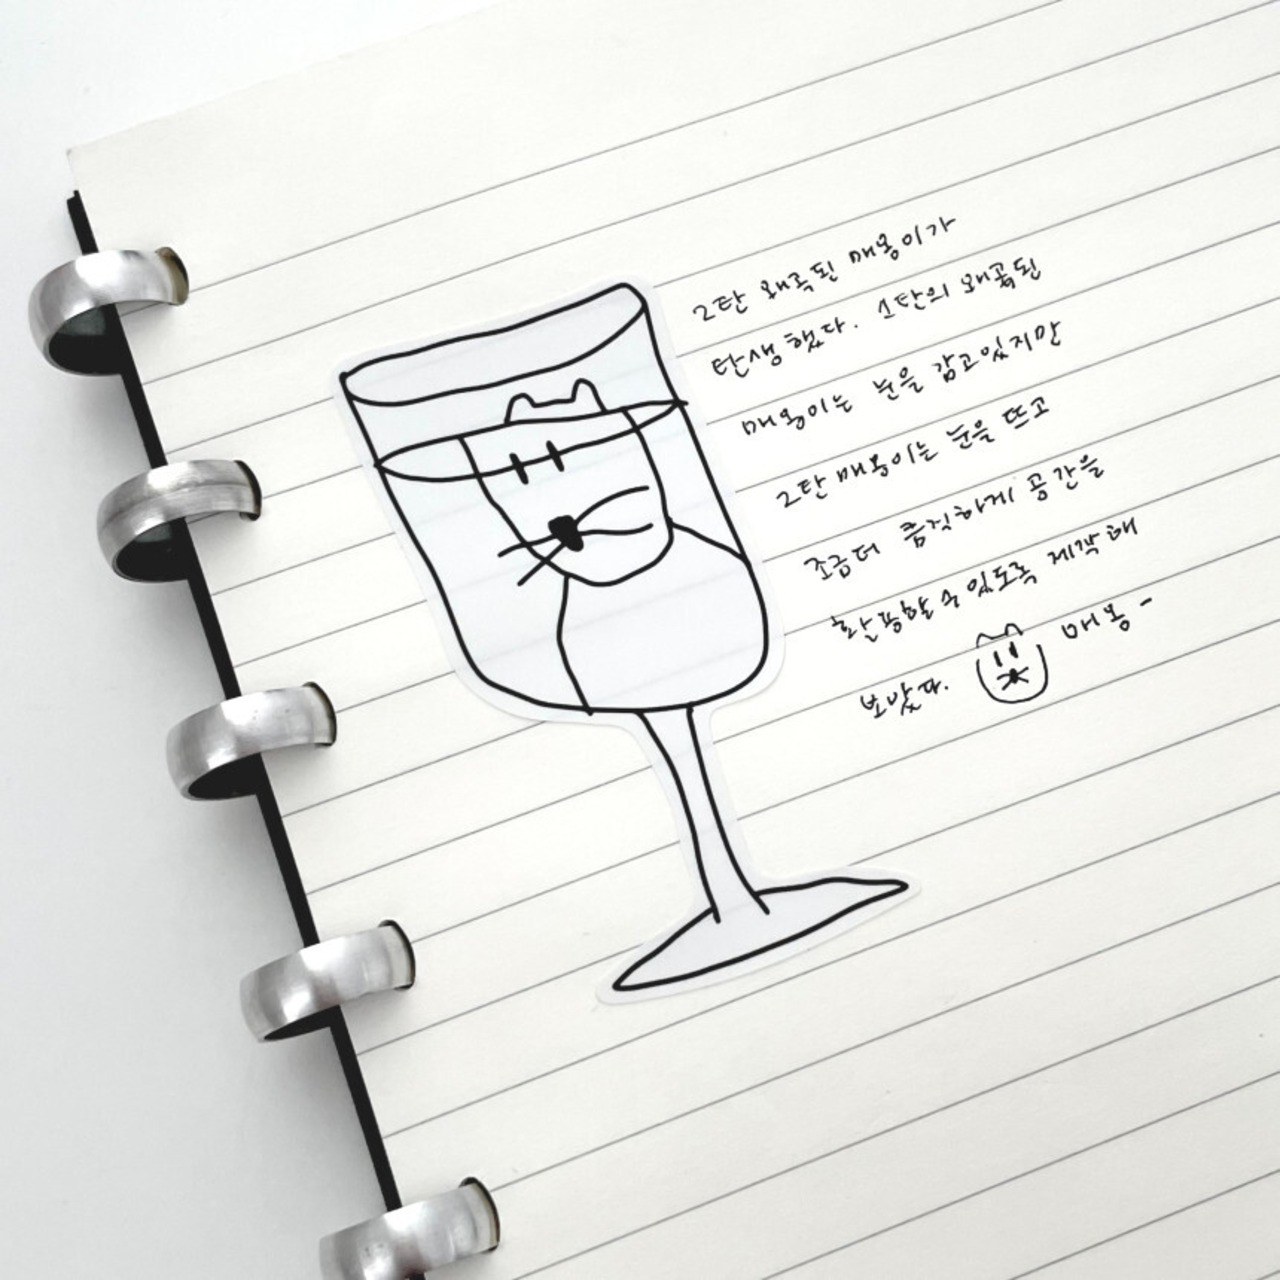 2탄 왜곡된 매옹이가
탄생했다. 1탄의 왜곡된
매옹이는 눈을 감고있지만
2탄 매옹이는 눈을 뜨고
조금더 큼직하게 공간을
활용할 수 있도록 제작해
보았다. 매옹-